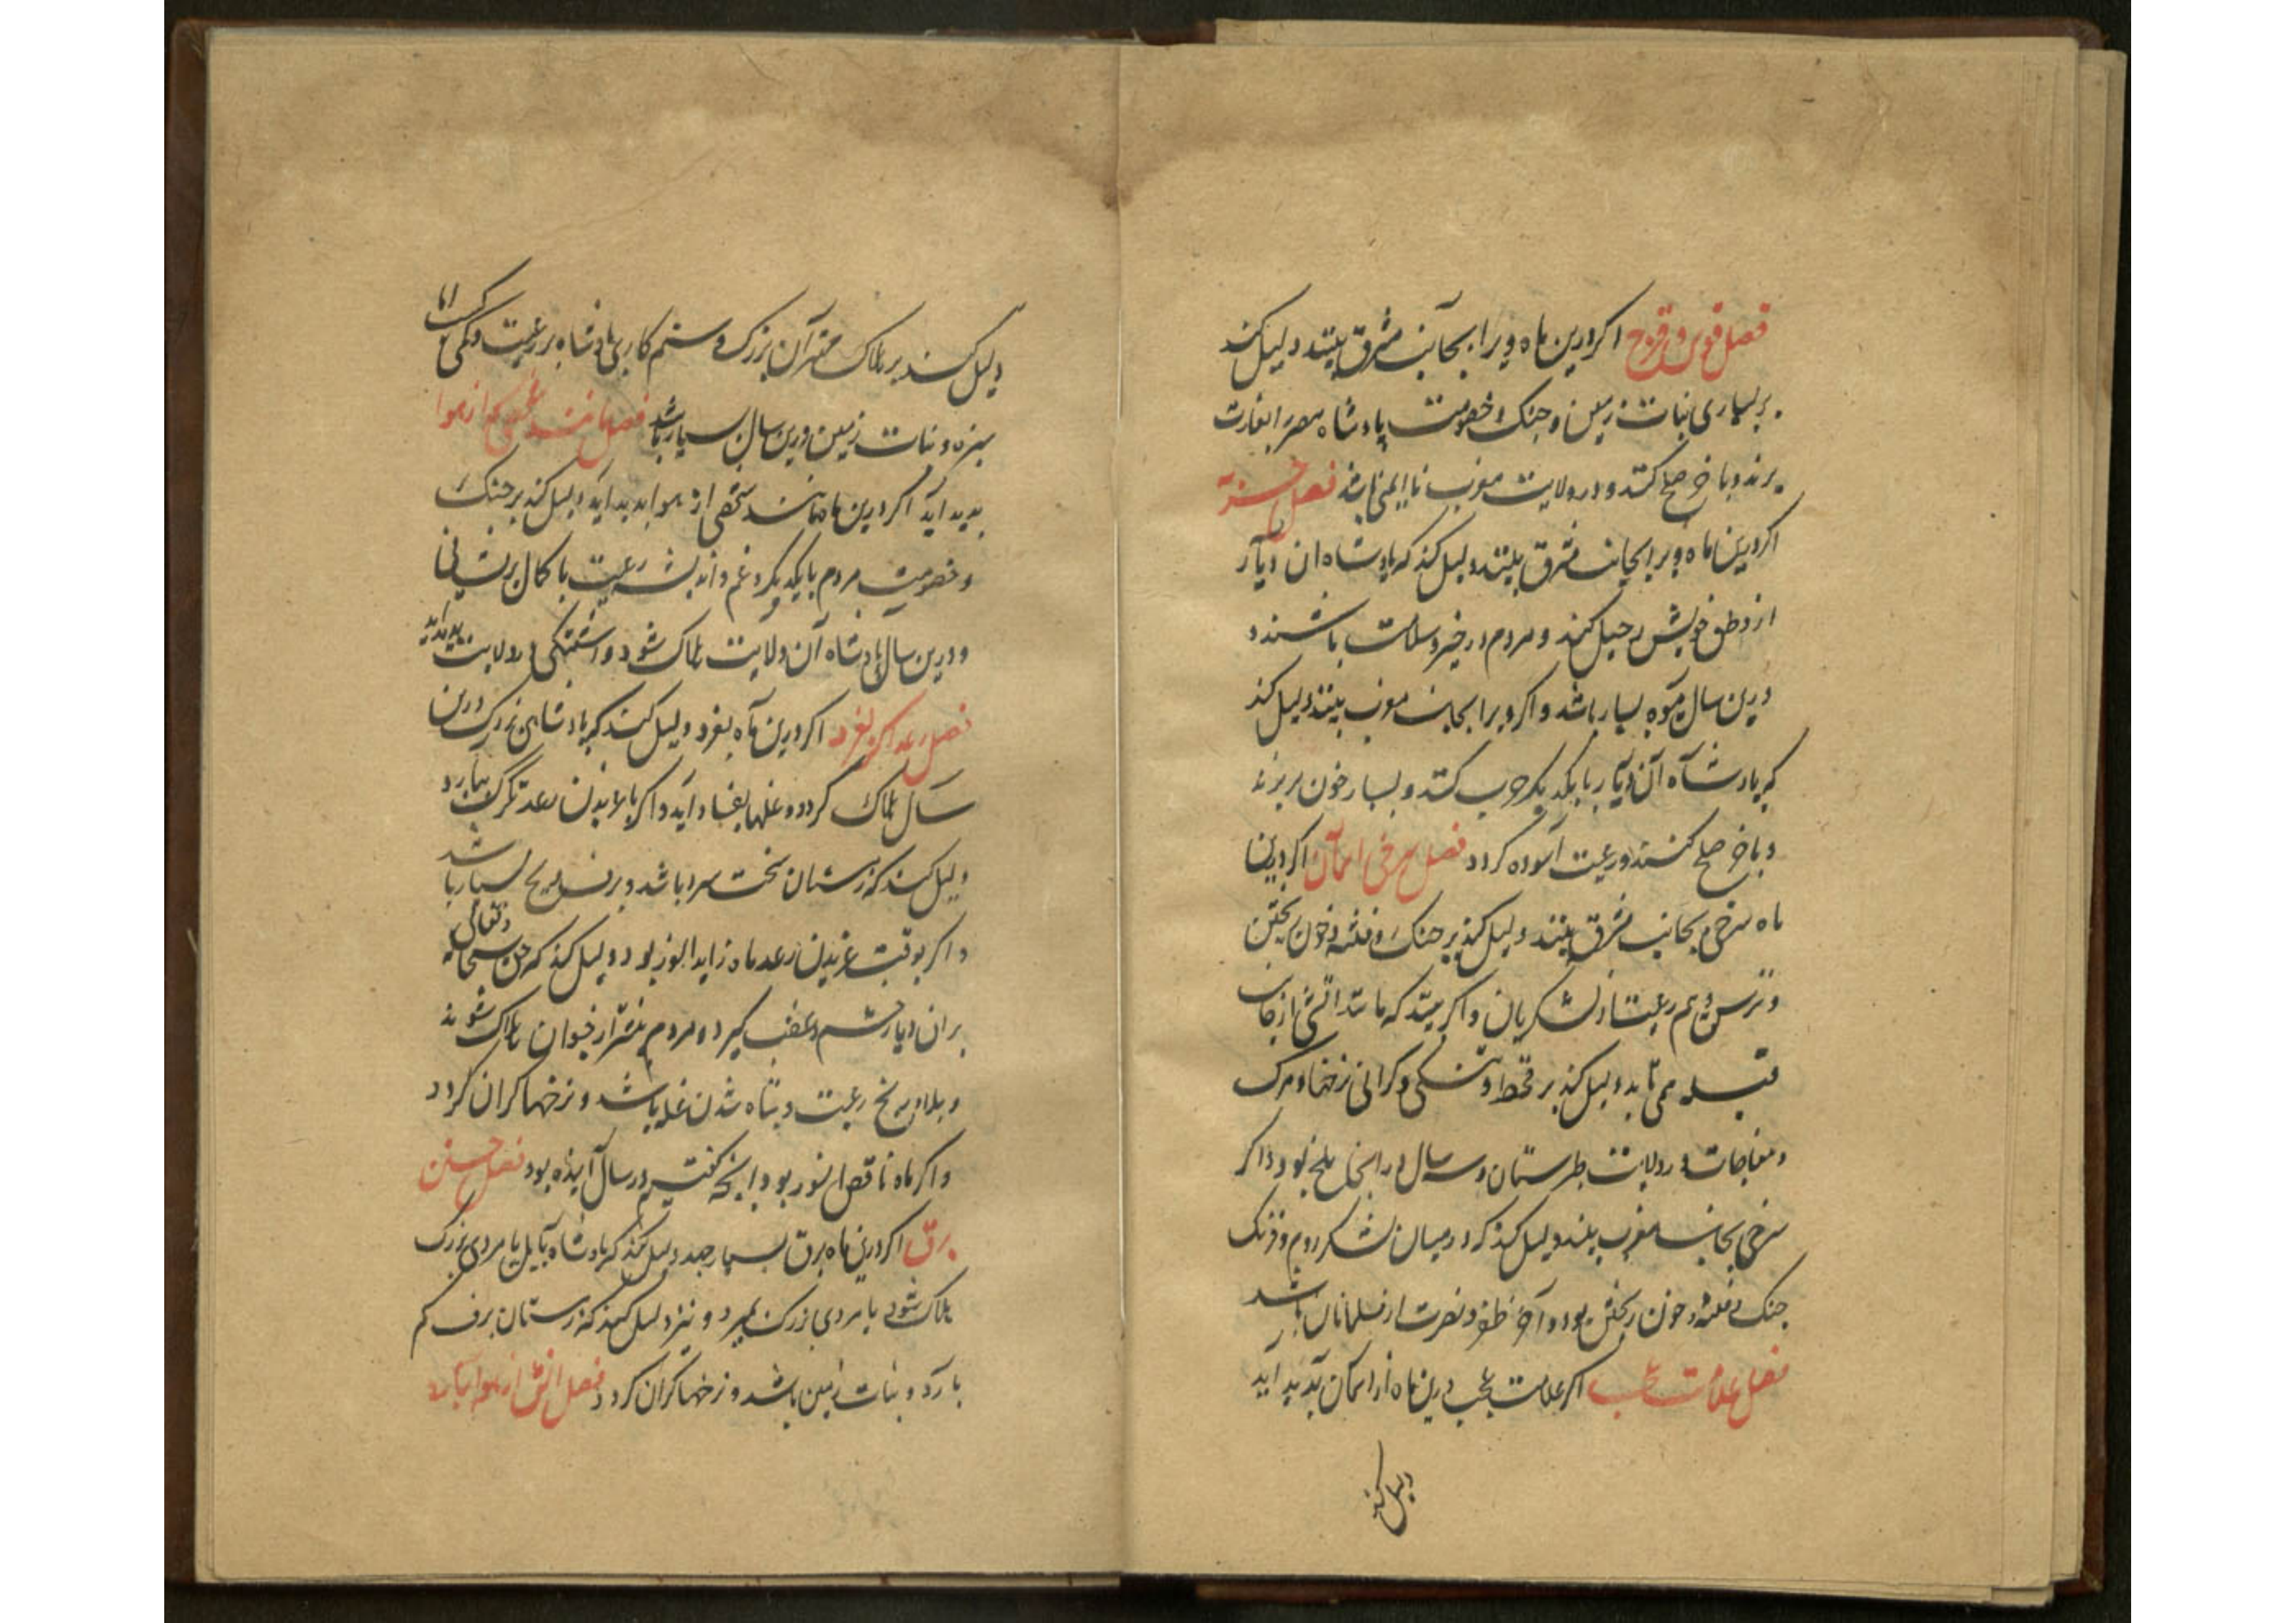 فصل قوس و قزح اکر درین ماه ویرا بجانب مشرق بینند دلیل کند
بر بسیاری نبات زمین و جنک و خصومت پادشاه مصر را بغارت
برند و باخر صلح کنند و در ولایت مغرب ناایمنی باشد فصل
اکر درین ماه ویرا بجانب مشرق بینند دلیل کند که پادشاه ان دیار
از وطن خویش رحیل کند و مردم در خیر و سلامت باشند و
درین سال میوه بسیار باشد و اکر ویرا بجانب مغرب بینند دلیل کند
که پادشاه آن دیار با یکدیکر حرب کنند و بسیار خون بریزند
و باخر صلح کنند و رعیت آسوده کردد فصل سرخی اسمان اکر درین
ماه سرخی بجانب مشرق بینند دلیل کند بر جنک و فتنه و خون ریختن
و ترس و بیم رعیت از لشکریان و اکر بینند که مانند اتش از جانب
قبله می تابد دلیل کند بر قحط و تنکی و کرانی نرخها و مرک
و مفاجات در ولایت طبرستان و سه سال در انجا ملخ بود و اکر
سرخی بجانب مغرب بینند دلیل کند که در میان لشکر روم و فرنک
جنک و فتنه و خون ریختن بود و آخر ظفر و نصرت از مسلمانان باشد
فصل علامت عجب اکر علامت عجب درین ماه از اسمان پدید اید
دلیل کند
دلیل کند بر هلاک مهتران بزرک و ستم کاری پادشاه بر رعیت و کمی
سبزه و نبات زمین درین سال بسیار باشد فصل مانند شخصی که از هوا
پدید آید اکر درین ماه مانند شخصی از هوا پدید اید دلیل کند بر جنک
و خصومت مردم با یکدیکر و غم و اندیشه رعیت با کمال پریشانی
و درین سال پادشاه آن ولایت هلاک شود و اشفتکی در ولایت پدید اید
فصل رعد اکر بغرد اکر درین ماه بغرد دلیل کند که پادشاهی بزرک درین
سال هلاک کردد و غلها بفساد آید و اکر با غریدن رعد تکرک ببارد
دلیل کند که زمستان سخت سرد باشد و برف و یخ بسیار باشد
و اکر بوقت غریدن رعد ماه زاید النور بود دلیل کند که حق سبحانه و تعالی
بران دیار خشم و غضب کیرد و مردم بیشتر از حیوان هلاک شوند
و بلا و رنج رعیت و تباه شدن غله باشد و نرخها کران کردد
و اکر ماه ناقص النور بود اینچه کفتیم در سال آینده بود فصل جستن
برق اکر درین ماه برق بسیار جهد دلیل کند که پادشاه بابل یا مردی بزرک
هلاک شود یا مردی بزرک بمیرد و نیز دلیل کند که زمستان برف کم
بارد و نبات زمین باشد و نرخها کران کردد فصل اتش از هوا ببارد